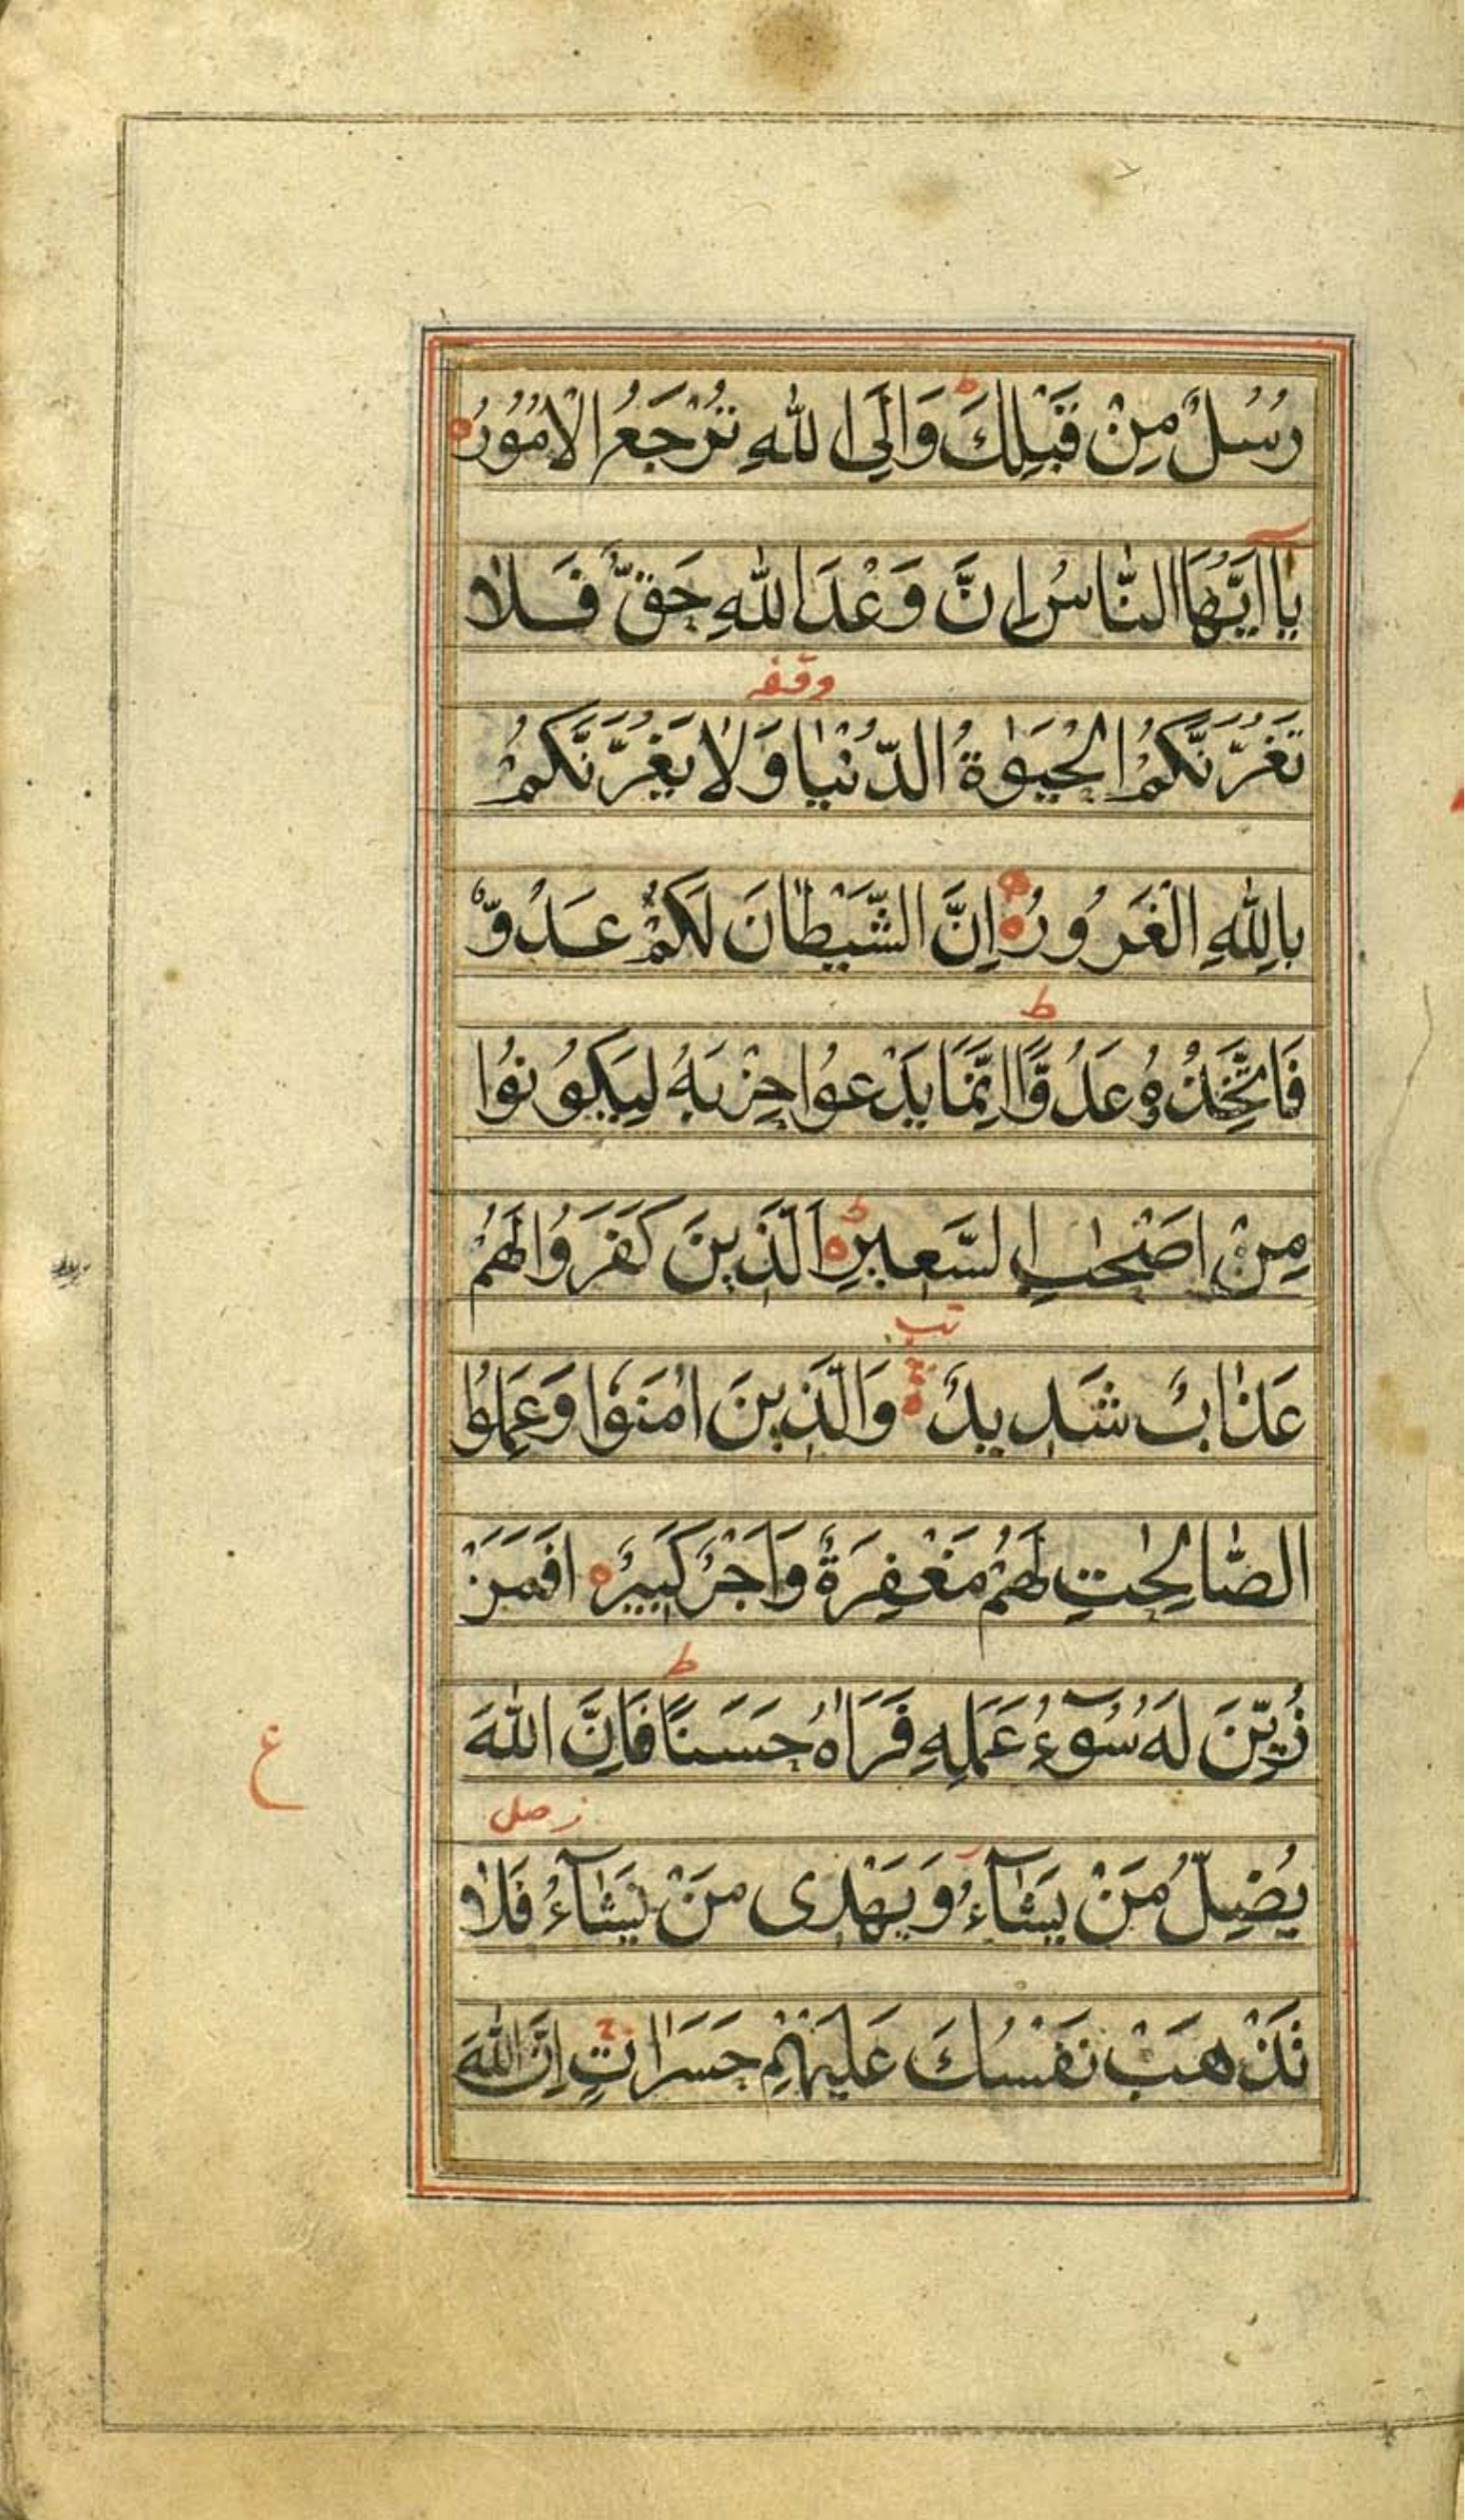 رُسُلٌ مِنْ قَبْلِكَ ط وَاِلَى اللّٰهِ تُرْجَعُ الْاُمُوْرُ ه
يٰٓا اَيُّهَا النَّاسُ اِنَّ وَعْدَ اللّٰهِ حَقٌّ فَلَا
وقفه
تَغُرَّنَّكُمُ الْحَيٰوةُ الدُّنْيَا وَلَا يَغُرَّنَّكُمْ
بِاللّٰهِ الْغَرُورُ ه اِنَّ الشَّيْطَانَ لَكُمْ عَدُوٌّ
ط
فَاتَّخِذُوْهُ عَدُوًّا اِنَّمَا يَدْعُوا حِزْبَهُ لِيَكُوْنُوا
مِنْ اَصْحٰبِ السَّعِيْرِ ه ط اَلَّذِينَ كَفَرُوا لَهُمْ
عَذَابٌ شَدِيدٌ ه وَالَّذِينَ اٰمَنُوا وَعَمِلُوا
الصَّالِحٰتِ لَهُمْ مَغْفِرَةٌ وَاَجْرٌ كَبِيرٌ ه اَفَمَنْ
ط
زُيِّنَ لَهُ سُوٓءُ عَمَلِهِ فَرَاٰهُ حَسَنًا فَاِنَّ اللّٰهَ
ع
ز صلى
يُضِلُّ مَنْ يَشَآءُ وَيَهْدِى مَنْ يَشَآءُ فَلَا
تَذْهَبْ نَفْسُكَ عَلَيْهِمْ حَسَرَاتٍ اِنَّ اللّٰهَ